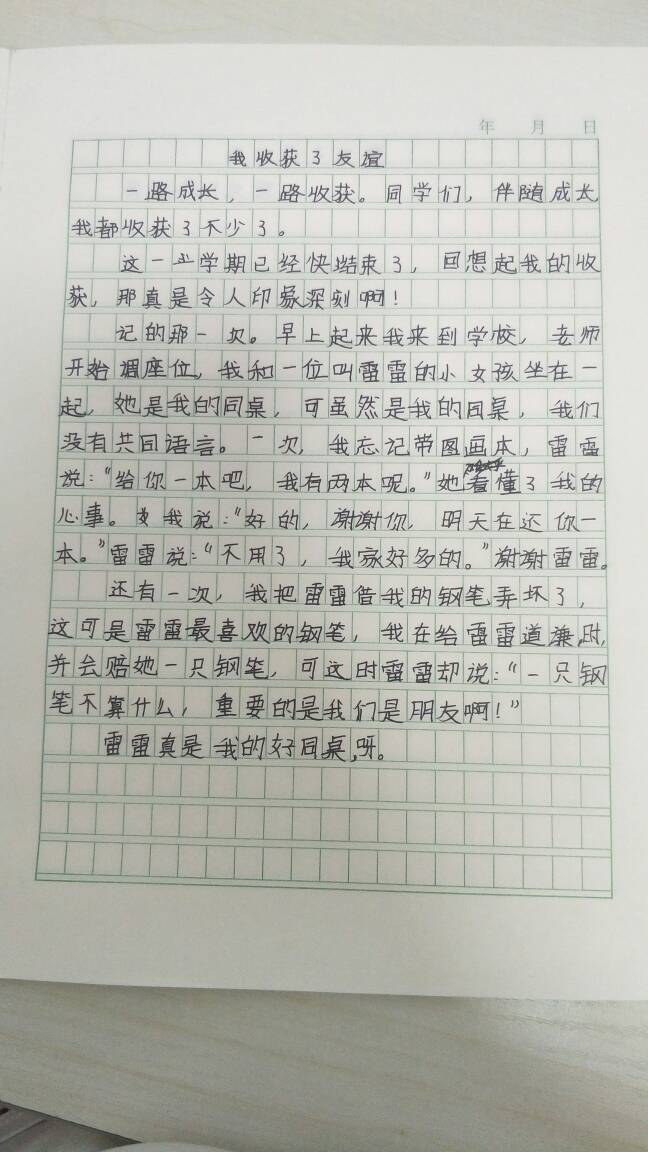 年 月 日
我收获了友谊
一路成长，一路收获。同学们，伴随成长
我都收获了不少了。
这一个学期已经快结束了，回想起我的收
获，那真是令人印象深刻啊！
记的那一次。早上起来我来到学校，老师
开始调座位，我和一位叫雷雷的小女孩坐在一
起，她是我的同桌，可虽然是我的同桌，我们
没有共同语言。一次，我忘记带图画本，雷雷
说：“给你一本吧，我有两本呢。”她看懂了我的
心事。我说：“好的，谢谢你，明天在还你一
本。”雷雷说：“不用了，我家好多的。”谢谢雷雷。
还有一次，我把雷雷借我的钢笔弄坏了，
这可是雷雷最喜欢的钢笔，我在给雷雷道廉时，
并会赔她一只钢笔，可这时雷雷却说：“一只钢
笔不算什么，重要的是我们是朋友啊！”
雷雷真是我的好同桌呀。